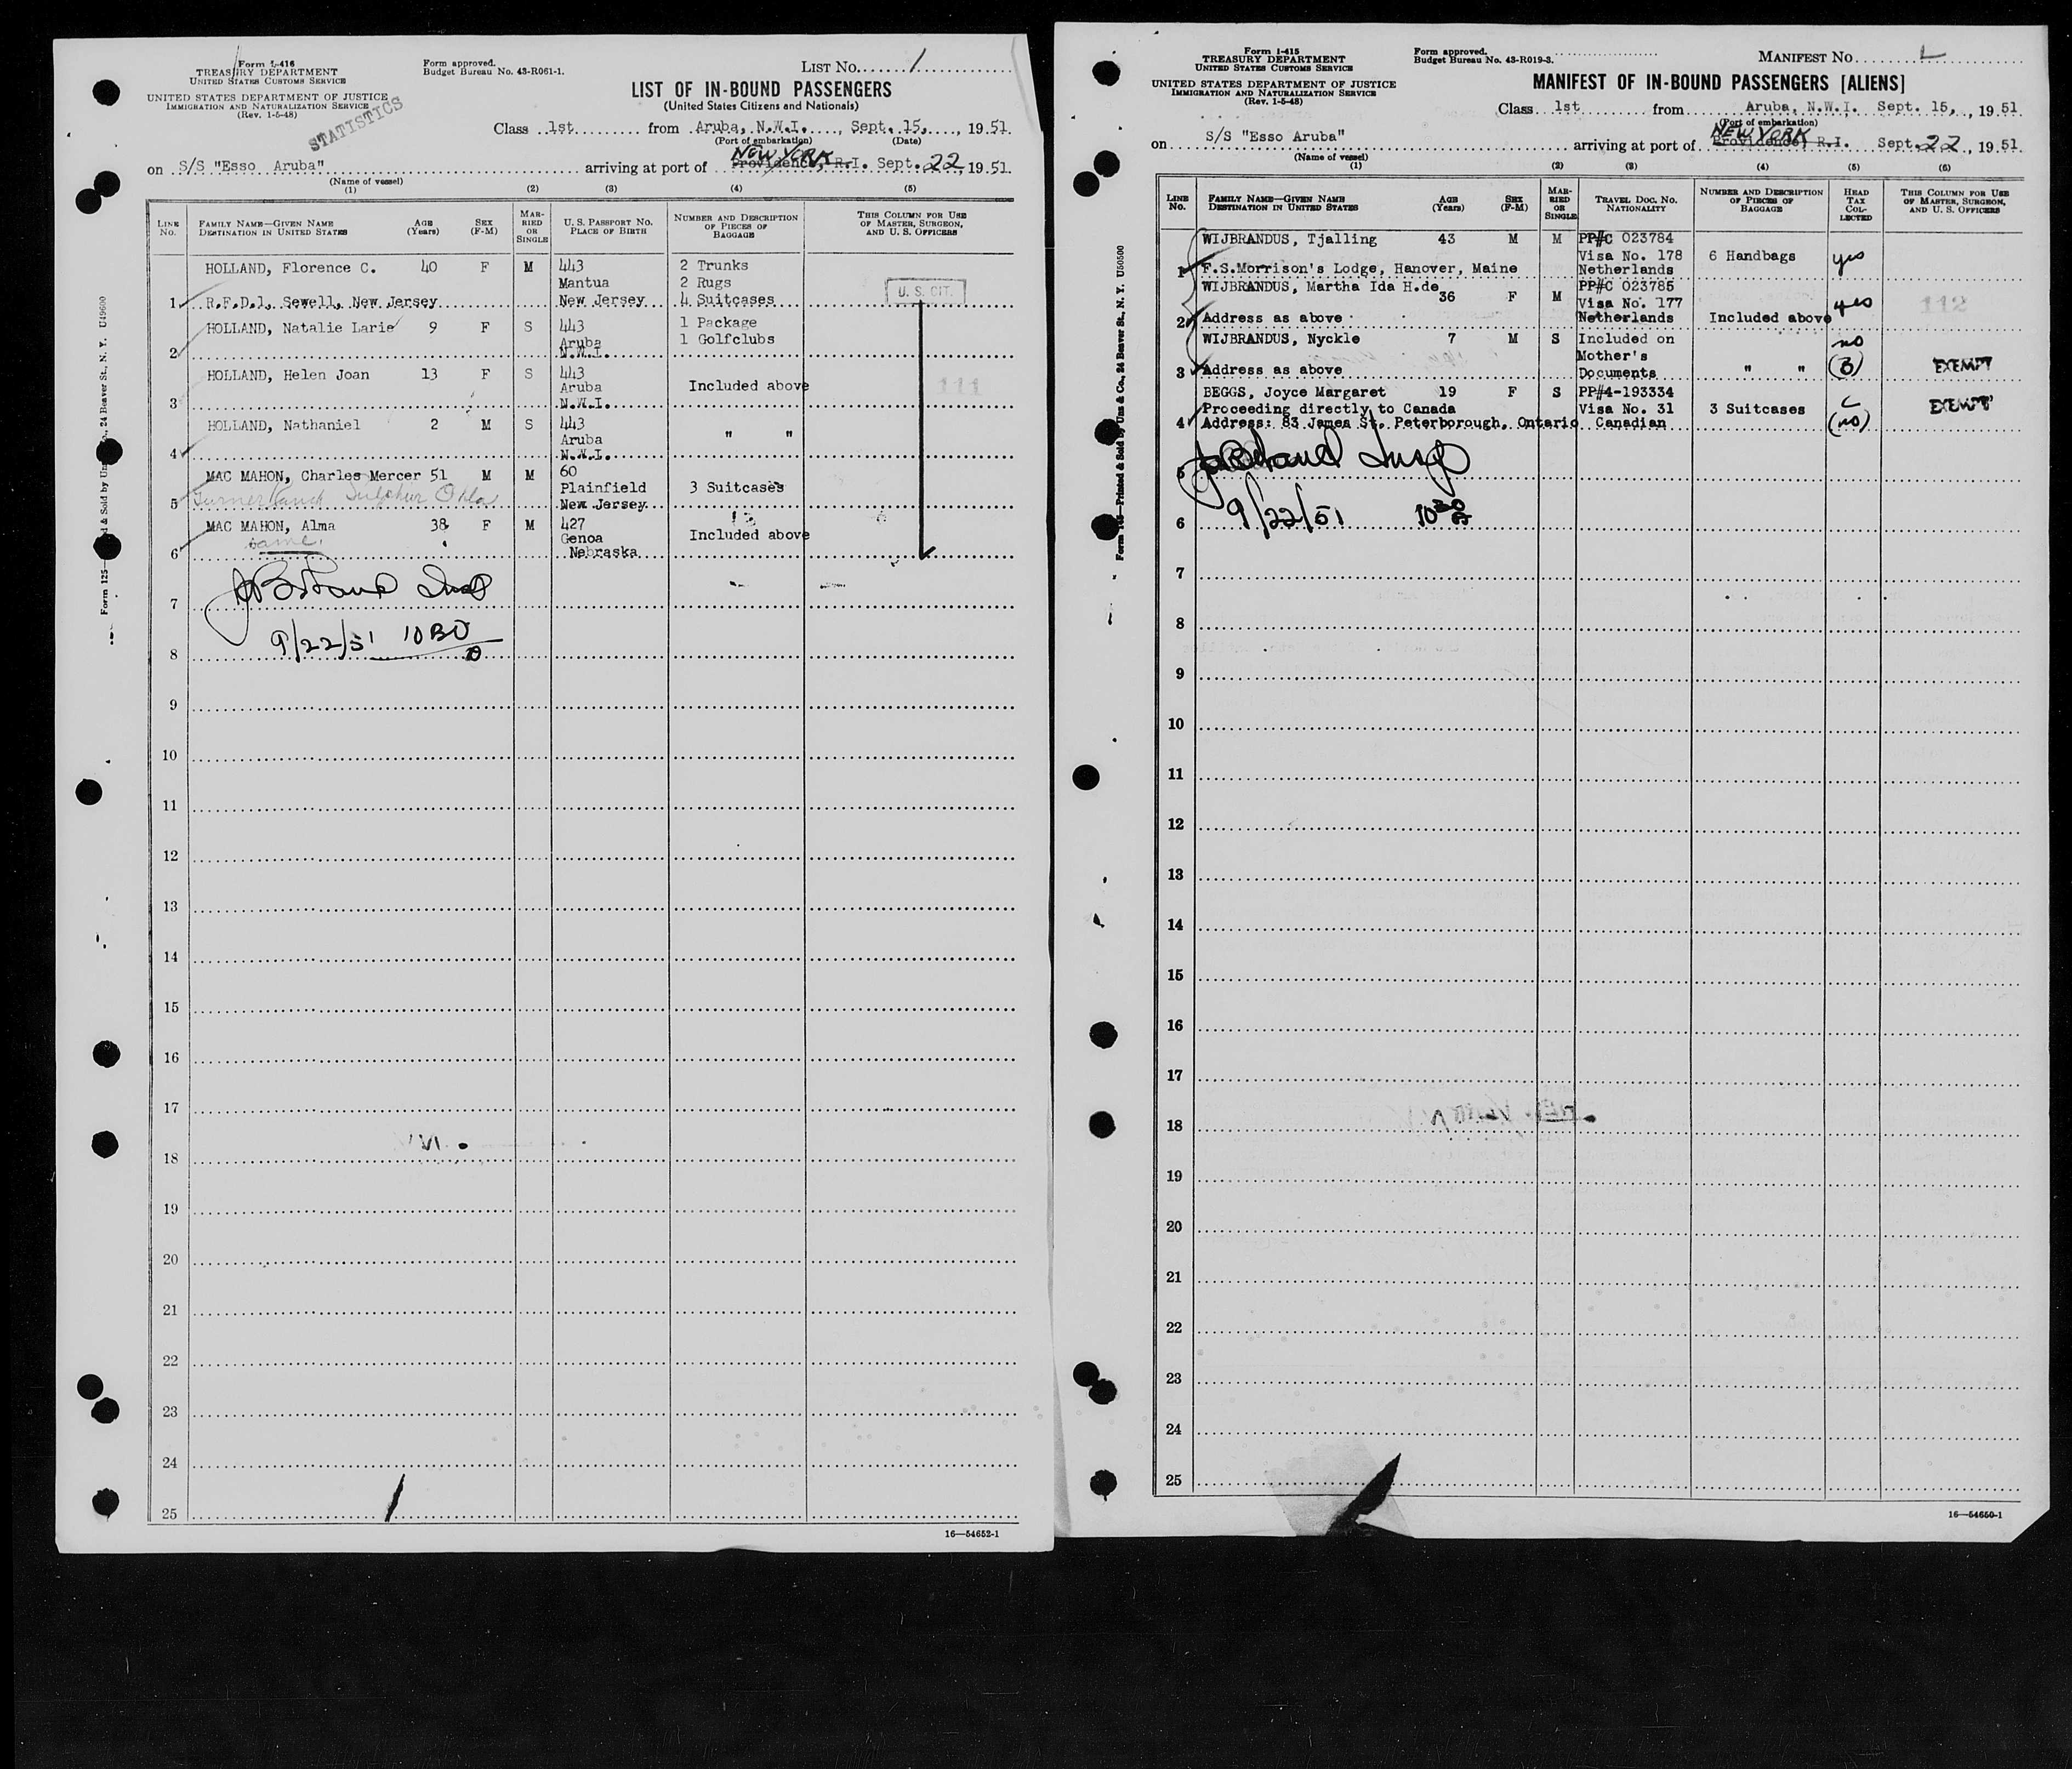 Form I-416
TREASURY DEPARTMENT
UNITED STATES CUSTOMS SERVICE
UNITED STATES DEPARTMENT OF JUSTICE
IMMIGRATION AND NATURALIZATION SERVICE
(Rev. 1-5-48)
STATISTICS
Form approved.
Budget Bureau No. 43-R061-1.
LIST No. 1
LIST OF IN-BOUND PASSENGERS
(United States Citizens and Nationals)
Class 1st from Aruba, N.W.I., Sept. 15, 1951
(Port of embarkation) (Date)
on S/S "Esso Aruba" arriving at port of NEW YORK Providence, R.I. Sept. 22, 1951
(Name of vessel)
(1) (2) (3) (4) (5)
LINE No. FAMILY NAME—GIVEN NAME DESTINATION IN UNITED STATES AGE (Years) SEX (F-M) MARRIED OR SINGLE U. S. PASSPORT NO. PLACE OF BIRTH NUMBER AND DESCRIPTION OF PIECES OF BAGGAGE THIS COLUMN FOR USE OF MASTER, SURGEON, AND U. S. OFFICERS
HOLLAND, Florence C. 40 F M 443 2 Trunks
Mantua 2 Rugs
1 R.F.D.1, Sewell, New Jersey New Jersey 4 Suitcases U. S. CIT.
HOLLAND, Natalie Larie 9 F S 443 1 Package
Aruba 1 Golfclubs
2 N.W.I.
HOLLAND, Helen Joan 13 F S 443
Aruba Included above 111
3 N.W.I.
HOLLAND, Nathaniel 2 M S 443
Aruba " "
4 N.W.I.
MAC MAHON, Charles Mercer 51 M M 60
Plainfield 3 Suitcases
5 Turner Ranch Sulphur Okla New Jersey
MAC MAHON, Alma 38 F M 427
same. Genoa Included above
6 Nebraska
7
9/22/51
8
9
10
11
12
13
14
15
16
17
18
19
20
21
22
23
24
25
16—54652-1
Form I-415
TREASURY DEPARTMENT
UNITED STATES CUSTOMS SERVICE
UNITED STATES DEPARTMENT OF JUSTICE
IMMIGRATION AND NATURALIZATION SERVICE
(Rev. 1-5-48)
Form approved.
Budget Bureau No. 43-R019-3.
MANIFEST No.
MANIFEST OF IN-BOUND PASSENGERS [ALIENS]
Class 1st from Aruba, N.W.I. Sept. 15, 1951
(Port of embarkation)
on S/S "Esso Aruba" arriving at port of NEW YORK Providence, R.I. Sept. 22, 1951
(Name of vessel)
(1) (2) (3) (4) (5) (6)
LINE No. FAMILY NAME—GIVEN NAME DESTINATION IN UNITED STATES AGE (Years) SEX (F-M) MARRIED OR SINGLE TRAVEL DOC. NO. NATIONALITY NUMBER AND DESCRIPTION OF PIECES OF BAGGAGE HEAD TAX COLLECTED THIS COLUMN FOR USE OF MASTER, SURGEON, AND U. S. OFFICERS
WIJBRANDUS, Tjalling 43 M M PP#C 023784
Visa No. 178 6 Handbags yes
1 F.S.Morrison's Lodge, Hanover, Maine Netherlands
WIJBRANDUS, Martha Ida H.de 36 F M PP#C 023785
Visa No. 177 yes 112
2 Address as above Netherlands Included above
WIJBRANDUS, Nyckle 7 M S Included on no
Mother's
3 Address as above Documents " " (B) EXEMPT
BEGGS, Joyce Margaret 19 F S PP#4-193334
Proceeding directly to Canada Visa No. 31 3 Suitcases EXEMPT
4 Address: 83 James St. Peterborough, Ontario Canadian (no)
5
6 9/22/51 10 30 A
7
8
9
10
11
12
13
14
15
16
17
18
19
20
21
22
23
24
25
16—54650-1